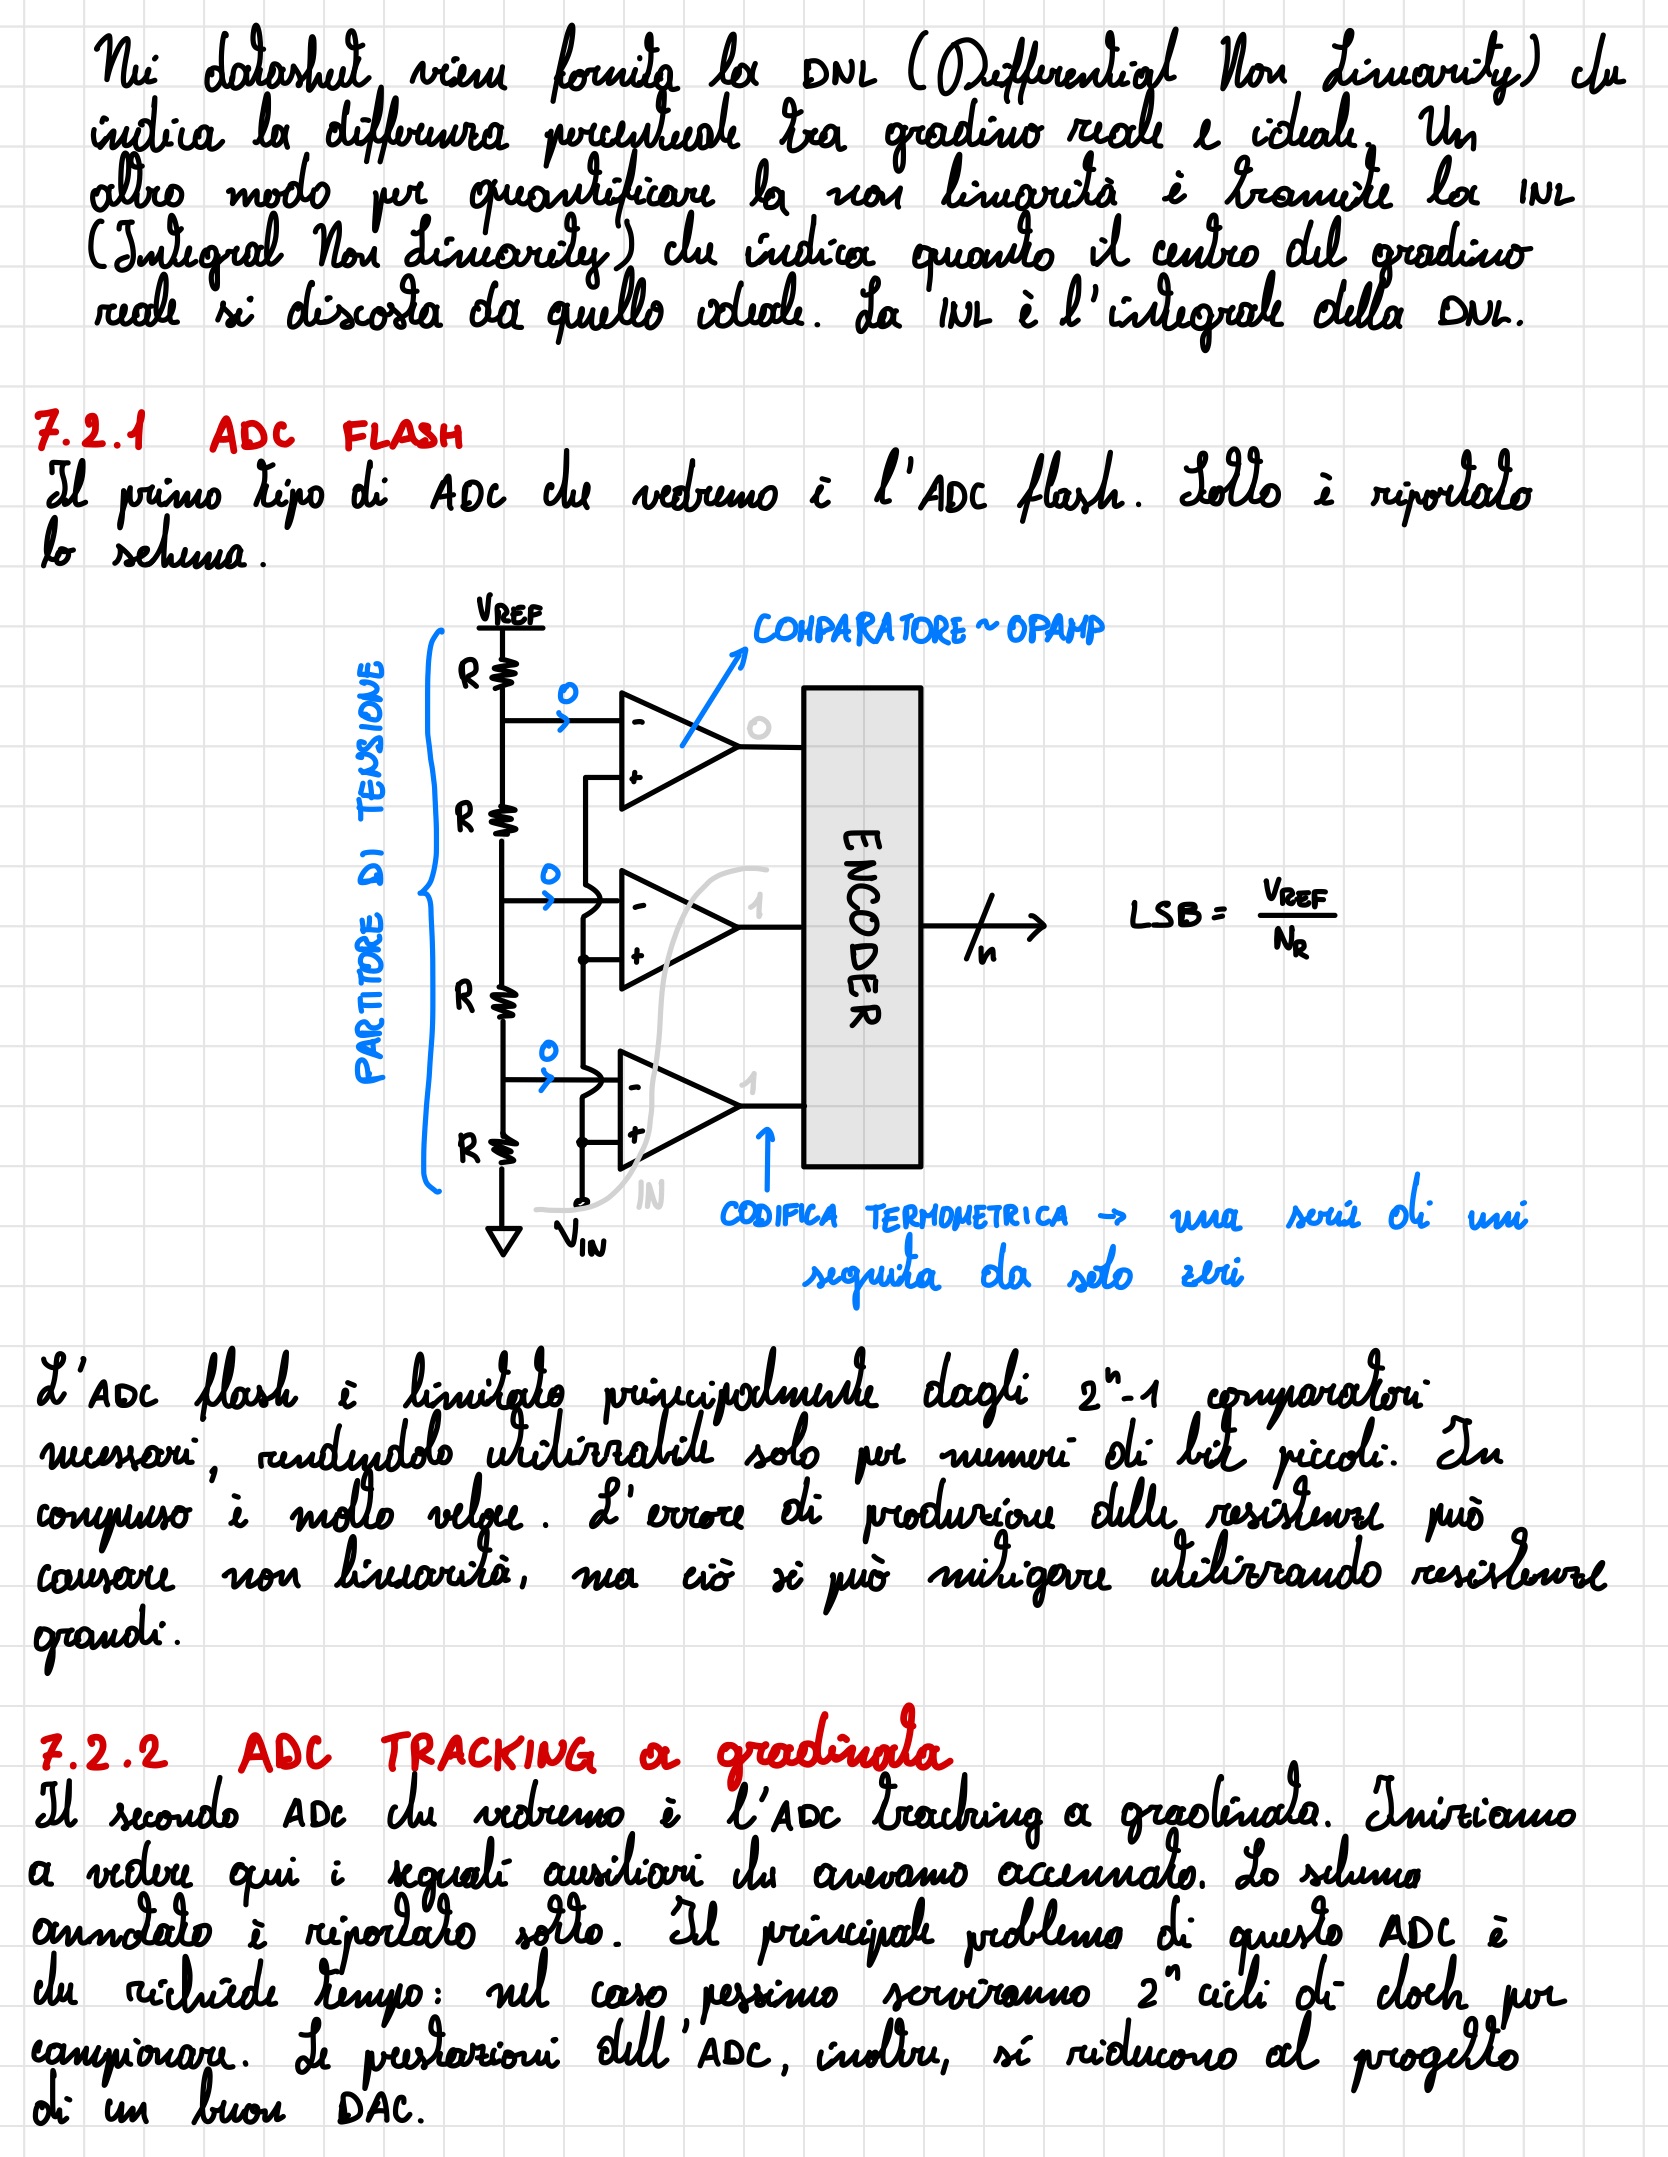 Nei datasheet viene fornita la DNL (Differential Non Linearity) che
indica la differenza percentuale tra gradino reale e ideale. Un
altro modo per quantificare la non linearità è tramite la INL
(Integral Non Linearity) che indica quanto il centro del gradino
reale si discosta da quello ideale. La INL è l'integrale della DNL.
7.2.1 ADC FLASH
Il primo tipo di ADC che vedremo è l'ADC flash. Sotto è riportato
lo schema.
VREF
COMPARATORE ~ OPAMP
PARTITORE DI TENSIONE
R
0
-
+
0
R
0
-
+
1
R
0
-
+
1
R
ENCODER
n
LSB = VREF / NR
IN
VIN
CODIFICA TERMOMETRICA → una serie di uni
seguita da solo zeri
L'ADC flash è limitato principalmente dagli 2ⁿ-1 comparatori
necessari, rendendolo utilizzabile solo per numeri di bit piccoli. In
compenso è molto veloce. L'errore di produzione delle resistenze può
causare non linearità, ma ciò si può mitigare utilizzando resistenze
grandi.
7.2.2 ADC TRACKING a gradinata
Il secondo ADC che vedremo è l'ADC tracking a gradinata. Iniziamo
a vedere qui i segnali ausiliari che avevamo accennato. Lo schema
annotato è riportato sotto. Il principale problema di questo ADC è
che richiede tempo: nel caso pessimo serviranno 2ⁿ cicli di clock per
campionare. Le prestazioni dell'ADC, inoltre, si riducono al progetto
di un buon DAC.